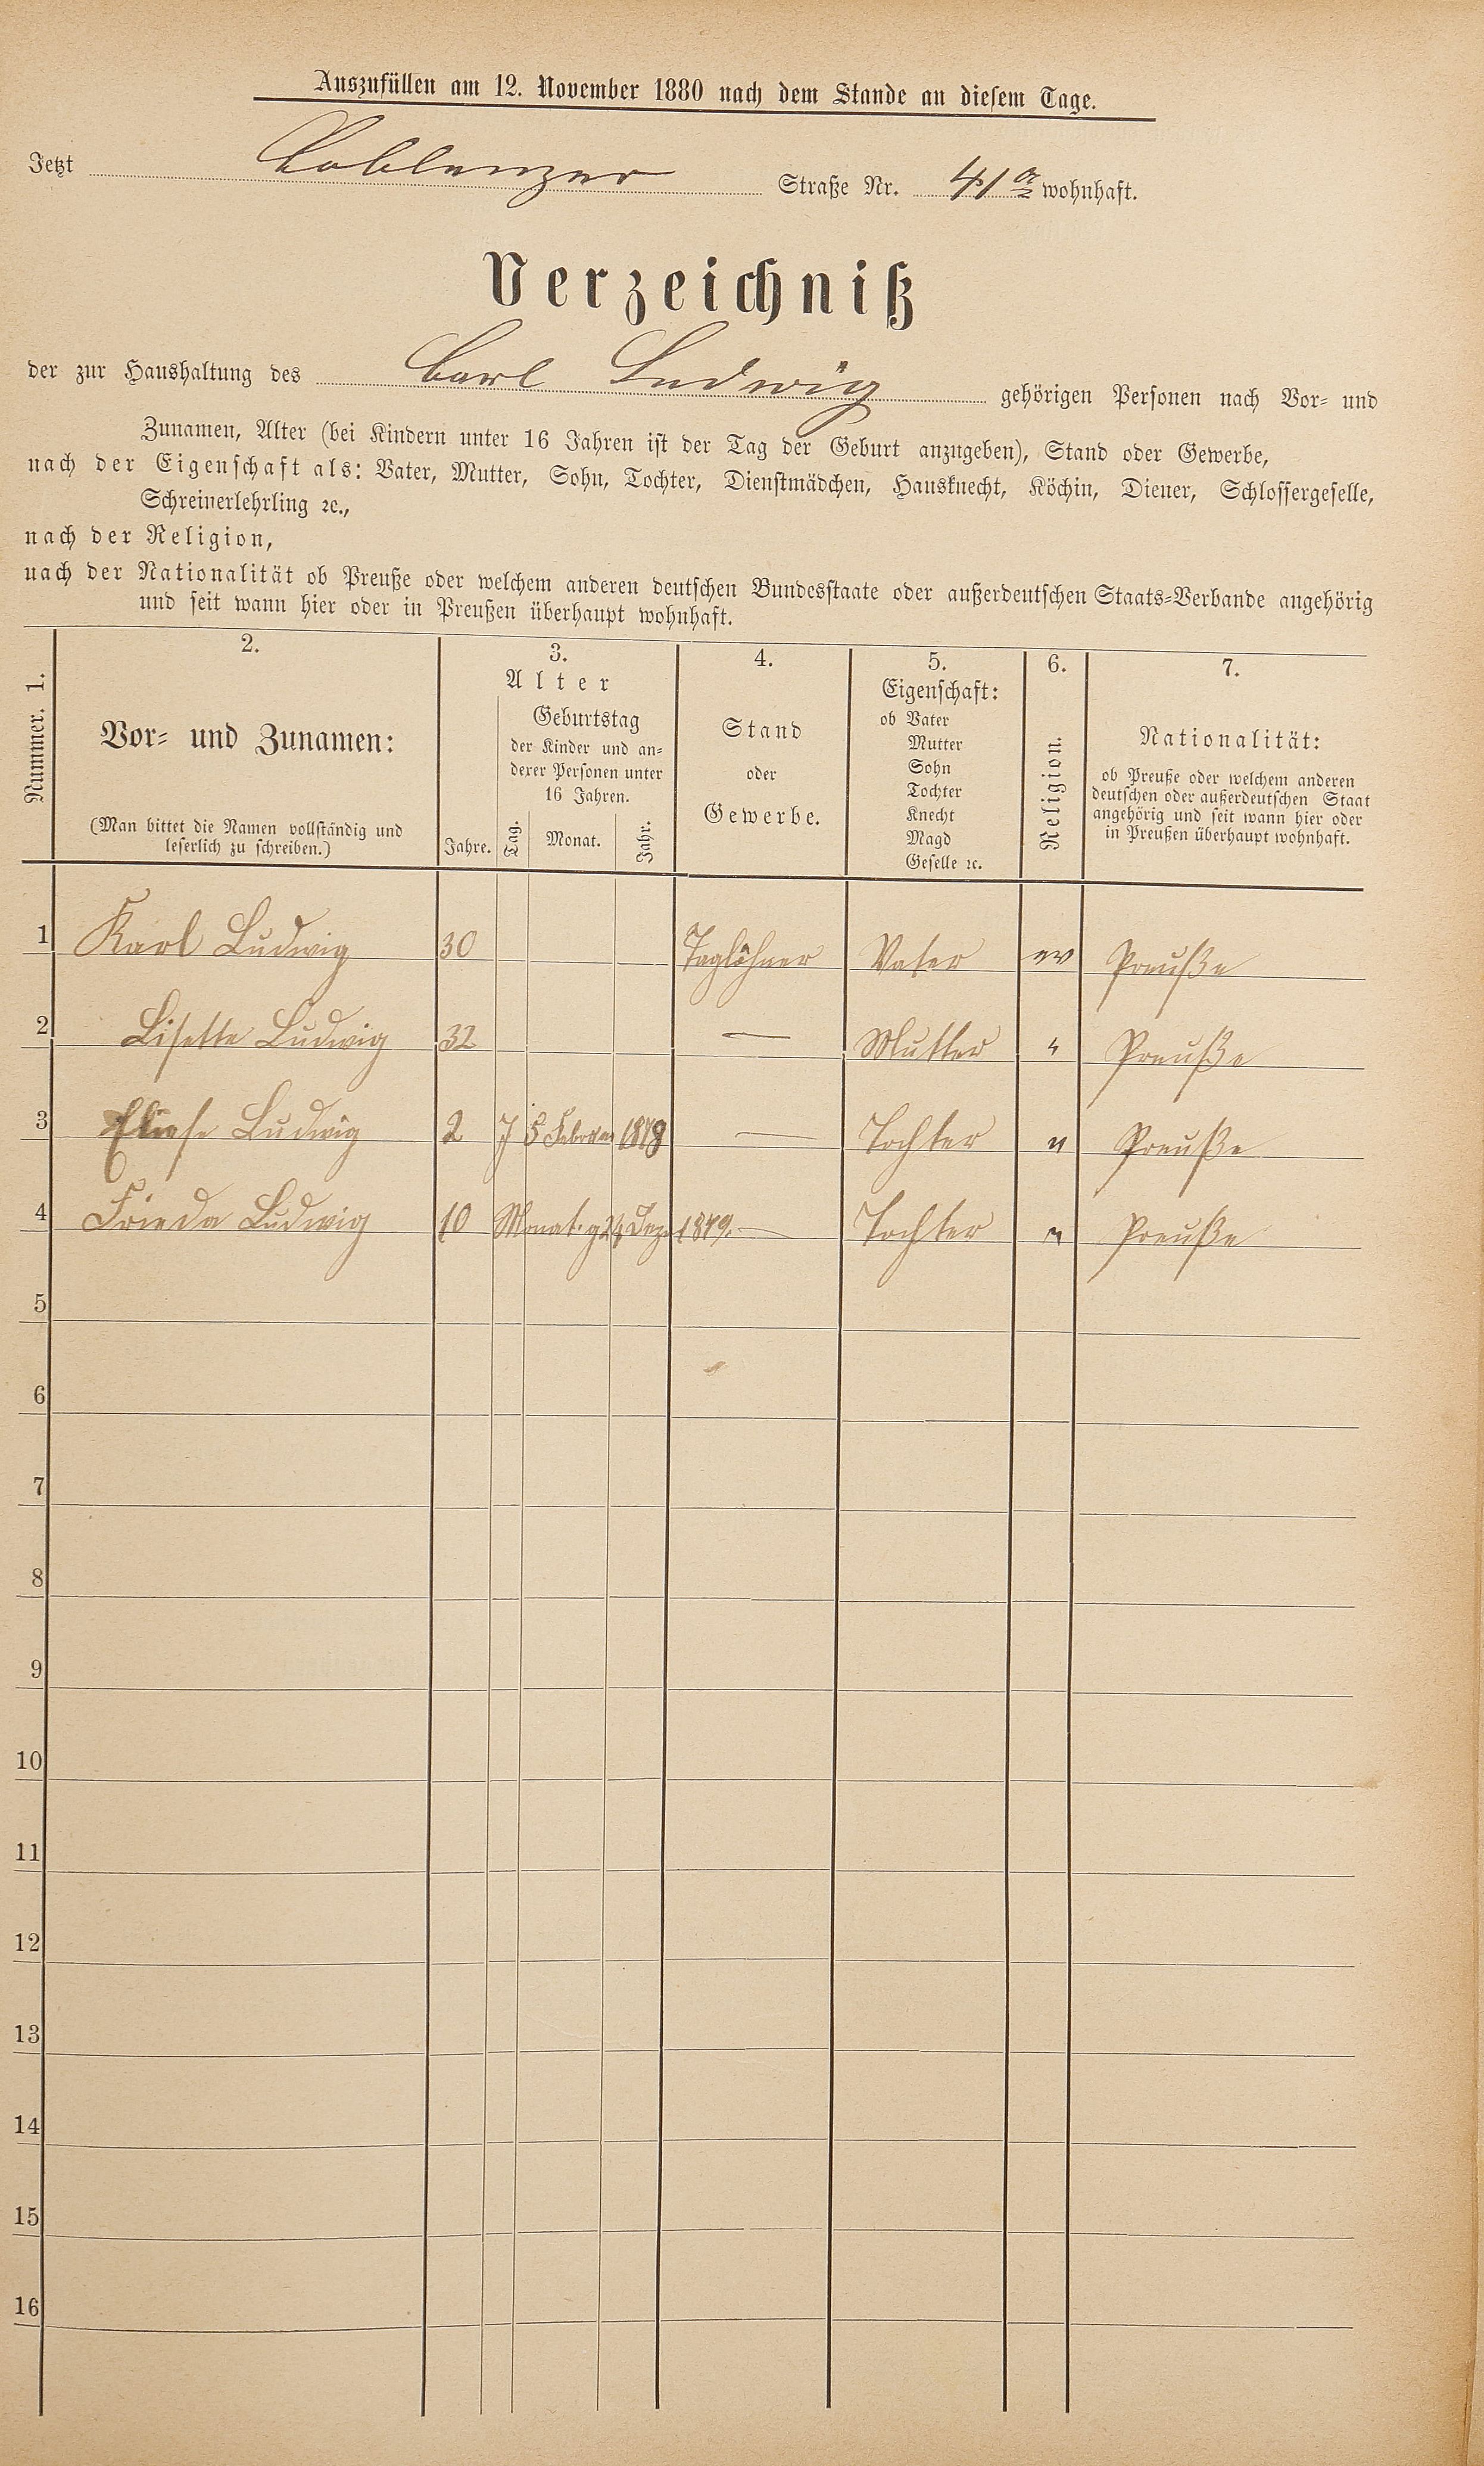 Auszufüllen am 12. November 1880 nach dem Stande an diesem Tage.
Jetzt Coblenzer Straße Nr. 41a wohnhaft.
Verzeichniß
der zur Haushaltung des Carl Ludwig gehörigen Personen nach Vor- und
Zunamen, Alter (bei Kindern unter 16 Jahren ist der Tag der Geburt anzugeben), Stand oder Gewerbe,
nach der Eigenschaft als: Vater, Mutter, Sohn, Tochter, Dienstmädchen, Hausknecht, Köchin, Diener, Schlossergeselle,
Schreinerlehrling ꝛc.,
nach der Religion,
nach der Nationalität ob Preuße oder welchem anderen deutschen Bundesstaate oder außerdeutschen Staats-Verbande angehörig
und seit wann hier oder in Preußen überhaupt wohnhaft.
Nummer. 1.
2.
Vor- und Zunamen:
(Man bittet die Namen vollständig und
leserlich zu schreiben.)
3.
Alter
Jahre.
Geburtstag
der Kinder und an-
derer Personen unter
16 Jahren.
Tag. Monat. Jahr.
4.
Stand
oder
Gewerbe.
5.
Eigenschaft:
ob Vater
Mutter
Sohn
Tochter
Knecht
Magd
Geselle ꝛc.
6.
Religion.
7.
Nationalität:
ob Preuße oder welchem anderen
deutschen oder außerdeutschen Staat
angehörig und seit wann hier oder
in Preußen überhaupt wohnhaft.
1 Karl Ludwig 30 Taglöhner Vater ev Preuße
2 Lisette Ludwig 32 — Mutter " Preuße
3 Eliese Ludwig 2 J 5 Februar 1878 — Tochter " Preuße
4 Frieda Ludwig 10 Monat. Dez 1879. — Tochter " Preuße
5
6
7
8
9
10
11
12
13
14
15
16